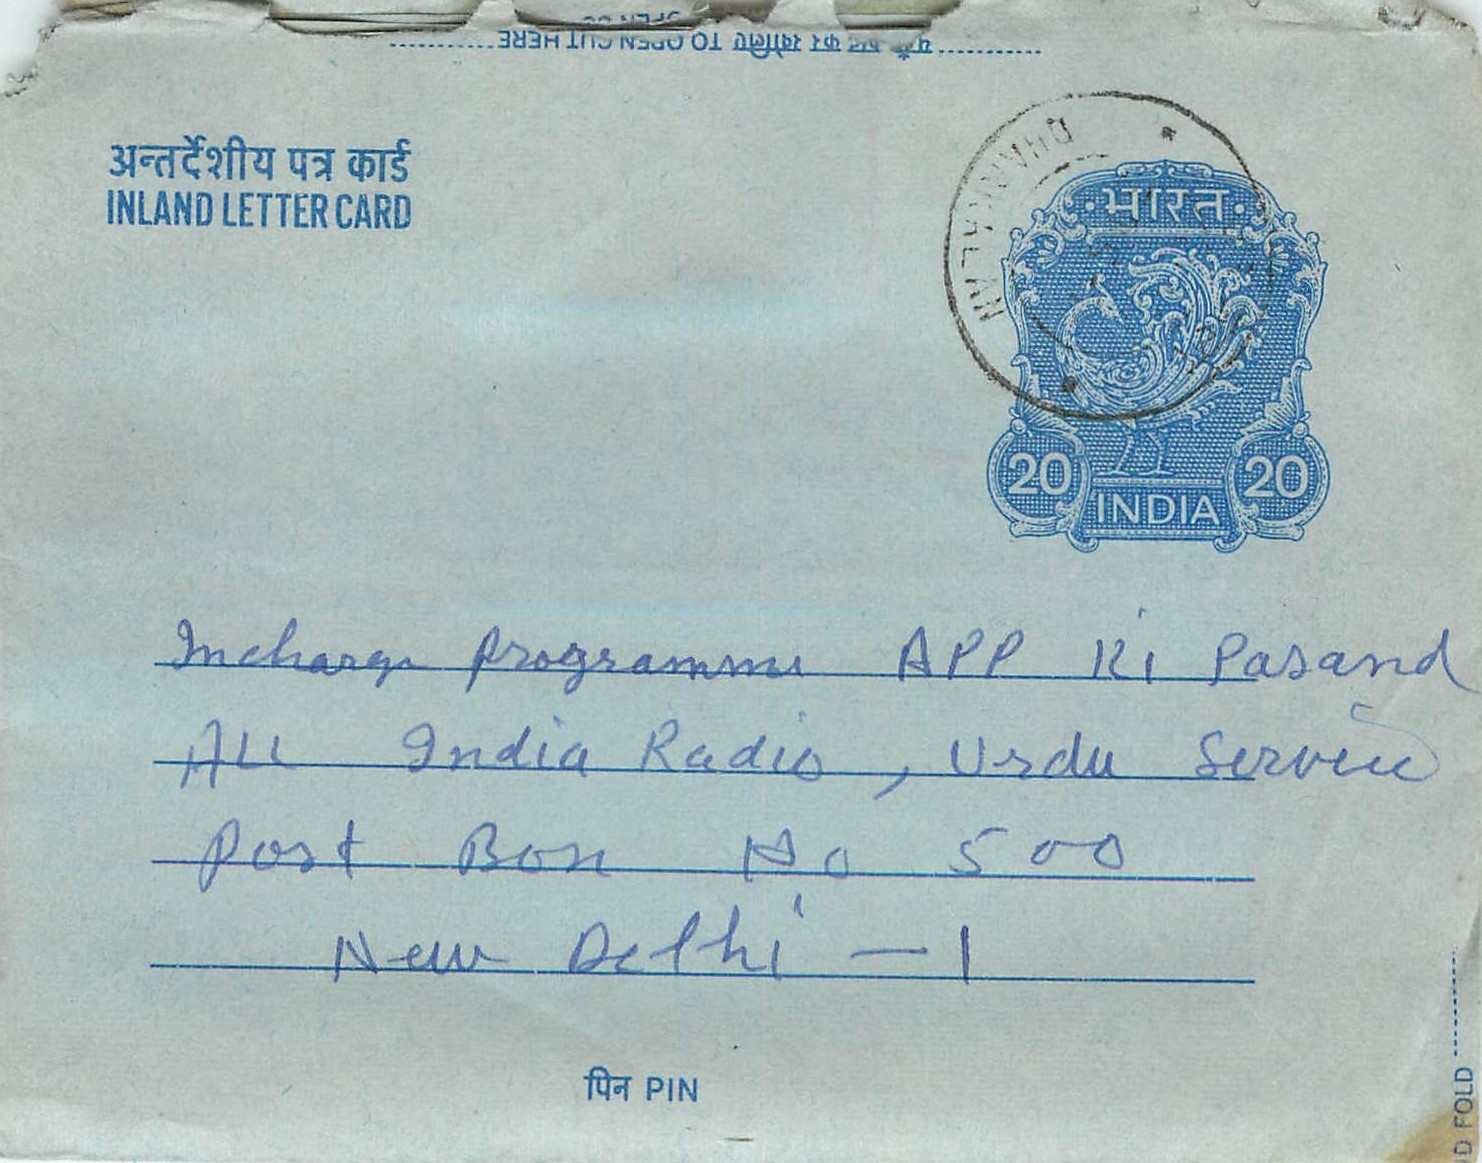 यहाँ काट कर खोलिए TO OPEN CUT HERE
अन्तर्देशीय पत्र कार्ड
INLAND LETTER CARD
भारत
20 20
INDIA
Incharge programme APP Ki Pasand
All India Radio, Urdu Service
Post Box No 500
New Delhi - 1
पिन PIN
FOLD